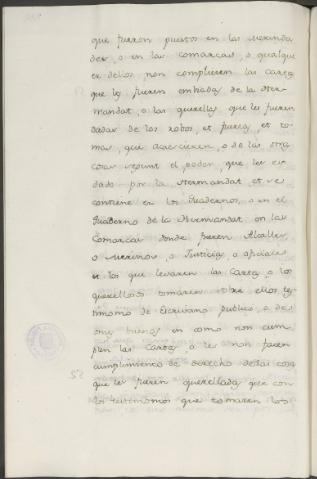 que fueron puestos en las Merinda
des, o en las comarcas, o qualquier
er dellos non complieren las cartas
que les fueren embiadas de la Her-
mandat, o las querellas que les fueren
dadas de los robos, et fuerzas, et to-
mas, que acaescieren, o de las otras
cosas segunt el poder, que les es
dado por la Hermandat, et se
contiene en los Quadernos, o en el
Quaderno de la Hermandat en las
Comarcas donde fueren Alcalles
o Merinos, o Justicias, o oficiales
et los que levaren las Cartas, o los
querellosos tomaren sobre ellos tes
timonio de Escrivano publico, o de
omes buenos en como non cum-
plen las cartas, o les non facen
cumplimiento de derecho destas cosas
que les fueren querelladas, que con
los testimonios que tomaren los
52